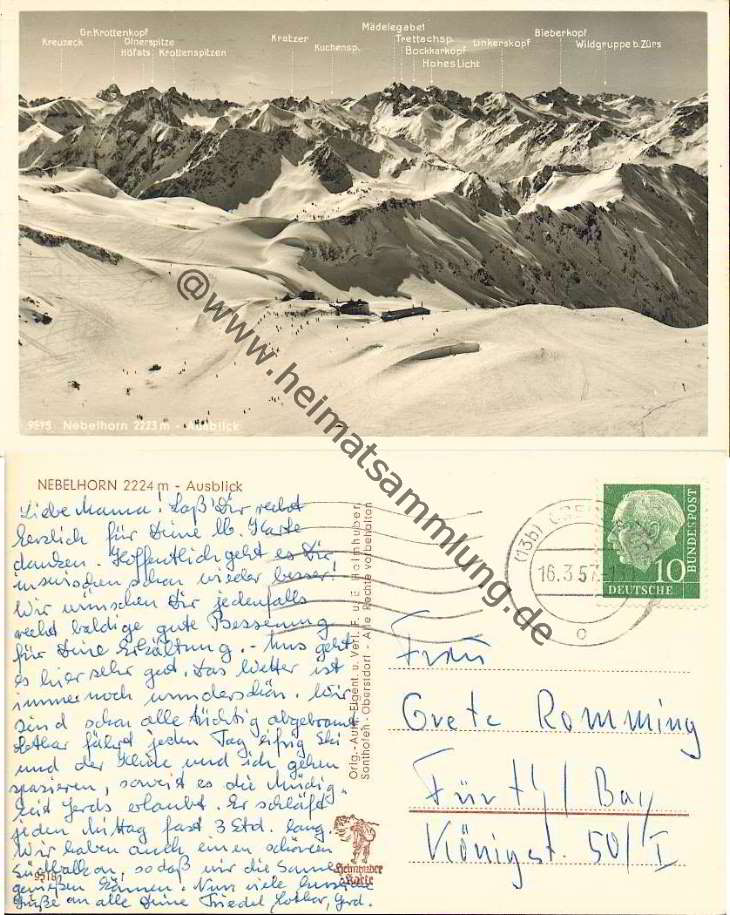 Mädelegabel
Gr. Krottenkopf
Trettachsp.
Bieberkopf
Kreuzeck
Ölnerspitze
Kratzer
Bockkarkopf
Linkerskopf
Wildgruppe b. Zürs
Höfats.
Krottenspitzen
Kuchensp.
Hohes Licht
9595 Nebelhorn 2223 m - Ausblick
@www.heimatsammlung.de
NEBELHORN 2224 m - Ausblick
Liebe Mama! Laß Dir recht
herzlich für Deine lb. Karte
danken. Hoffentlich geht es Dir
inzwischen schon wieder besser!
Wir wünschen Dir jedenfalls
recht baldige gute Besserung
für Deine Erkältung. - Uns geht
es hier sehr gut. Das Wetter ist
immer noch wunderschön. Wir
sind schon alle tüchtig abgebrannt.
Lothar fährt jeden Tag eifrig Ski
und der Kleine und ich gehen
spazieren, soweit es die Müdig-
keit Gerds erlaubt. Er schläft
jeden Mittag fast 3 Std. lang.
Wir haben auch einen schönen
Südbalkon, sodaß wir die Sonne
genießen können. Nun viele
Grüße an alle Deine Friedel Lothar, Gerd.
Orig.-Aufn. Eigent. u. Verl. F. u. E. Heimhuber
Sonthofen-Oberstdorf - Alle Rechte vorbehalten
Heimhuber
Karte
(13b)
16.3.57
c
10
DEUTSCHE
BUNDESPOST
Frau
Grete Romming
Fürth / Bay
Königst. 50/I